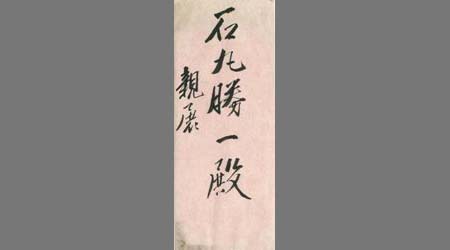 石丸勝一殿
親展